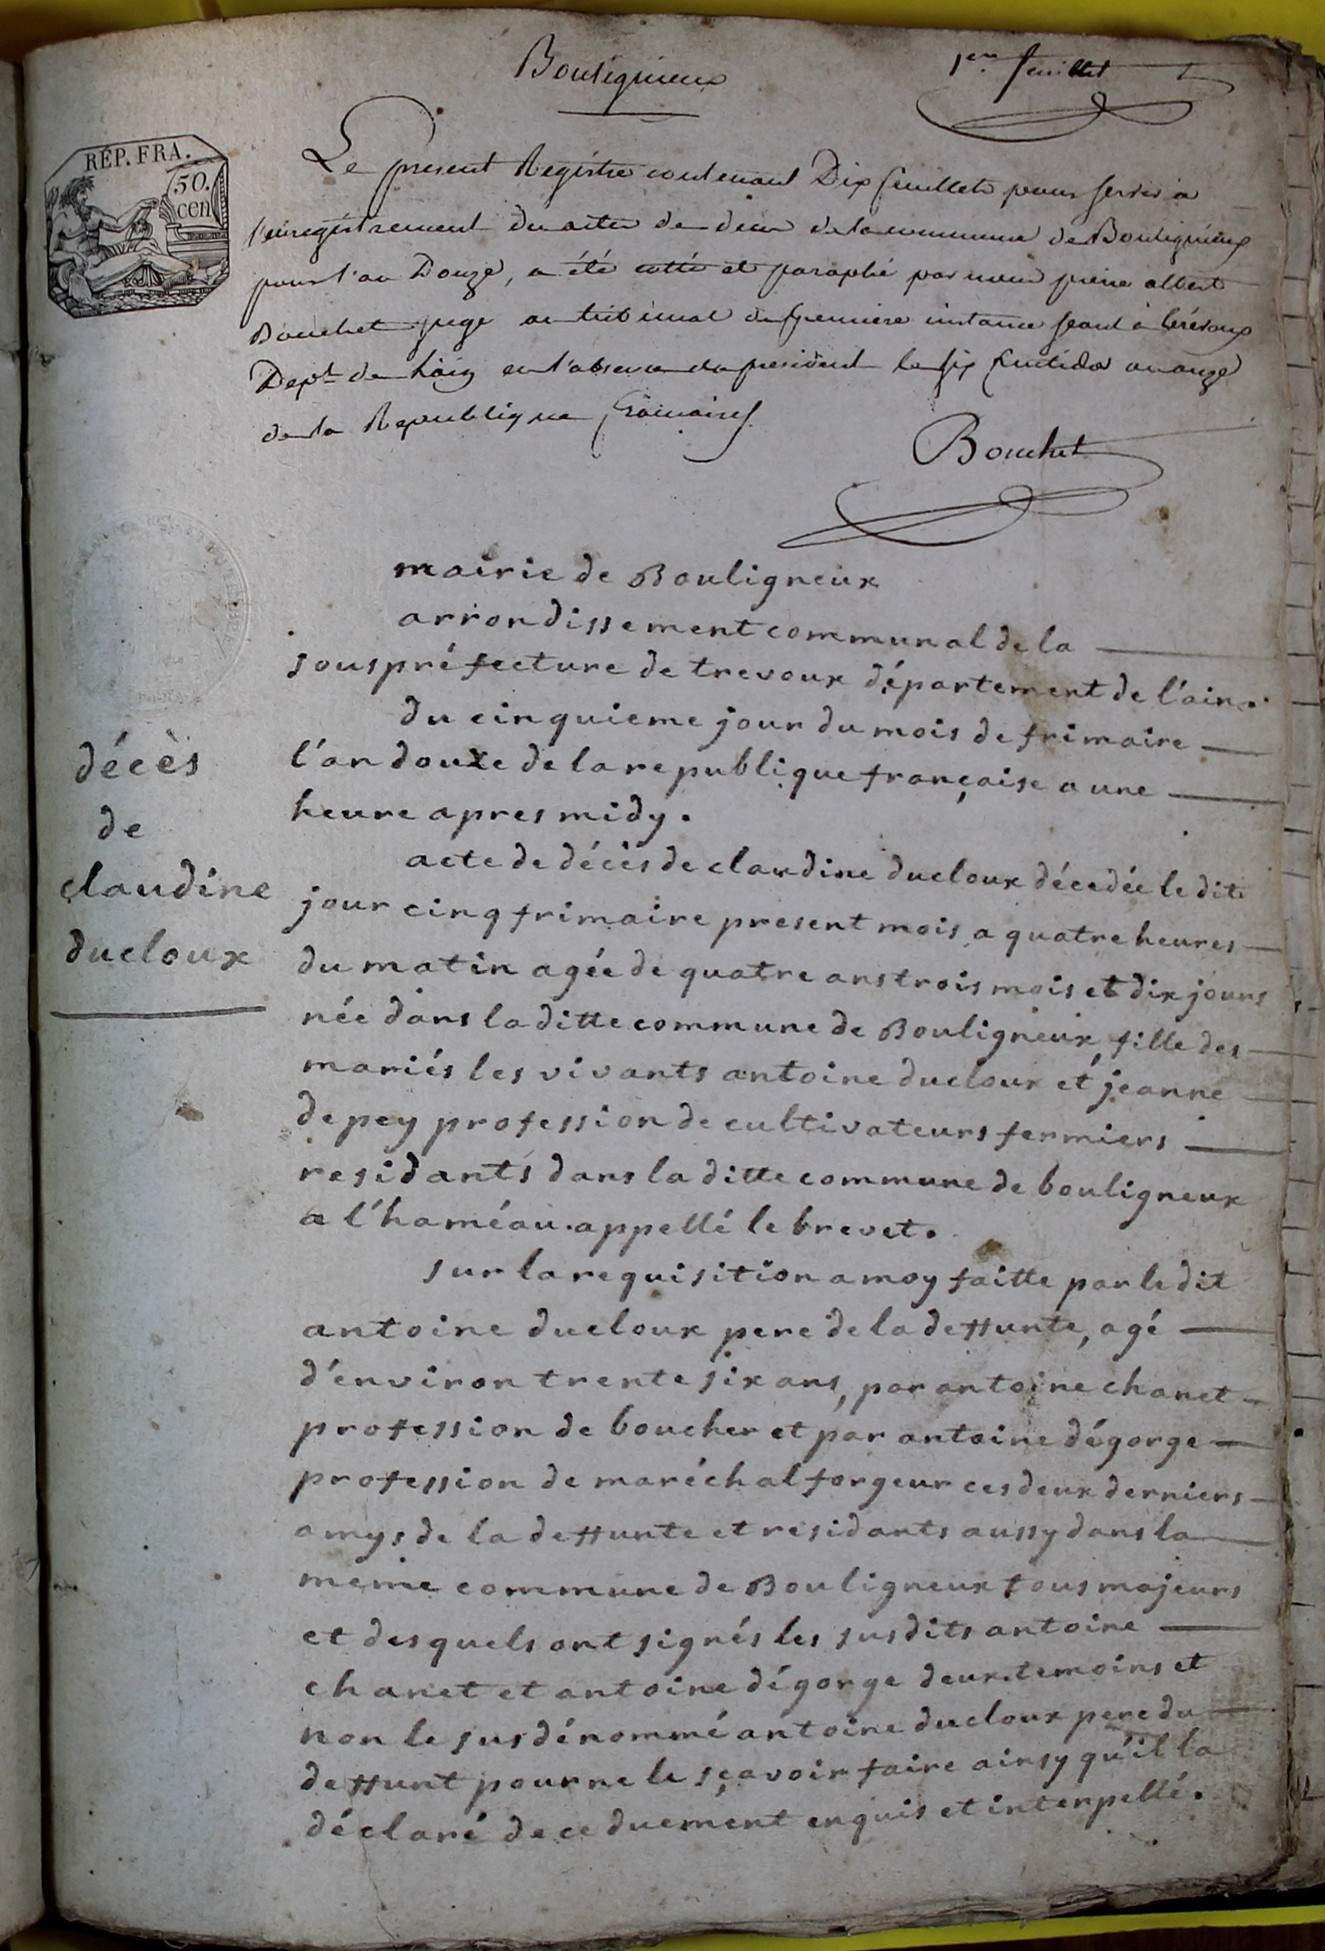 Bouligneux
1er feuillet
RÉP. FRA.
50.
cen
Le present Registre contenant Dix feuillets pour servir a
l'enregistrement des actes de deces de la commune de Bouligneux
pour l'an Douze, a été cotté et paraphé par nous pierre albert
Bouchet juge au tribunal de premiere instance seant à trévoux
Dept de L'ain en l'absence du president le six fructidor an onze
de la Republique francaise
Bouchet
mairie de Bouligneux
arrondissement communal de la
souspréfecture de trevoux département de l'ain.
du cinquieme jour du mois de frimaire
l'an douze de la republique française a une
heure apres midy.
décès
de
claudine
ducloux
acte de décès de claudine ducloux décedée le dit
jour cinq frimaire present mois a quatre heures
du matin agée de quatre ans trois mois et dix jours
née dans la ditte commune de Bouligneux, fille des
mariés les vivants antoine ducloux et jeanne
depey profession de cultivateurs fermiers
residants dans la ditte commune de bouligneux
a l'haméau appellé le brevet.
sur la requisition a moy faitte par le dit
antoine ducloux pere de la deffunte, agé
d'environ trente six ans, par antoine chanet
profession de boucher et par antoine dégorge
profession de maréchal forgeur ces deux derniers
amys de la deffunte et residants aussy dans la
même commune de Bouligneux tous majeurs
et desquels ont signés les susdits antoine
chanet et antoine dégorge deux temoins et
non le susdénommé antoine ducloux pere du
deffunt pour ne le sçavoir faire ainsy qu'il la
déclaré de ce duement enquis et interpellé.